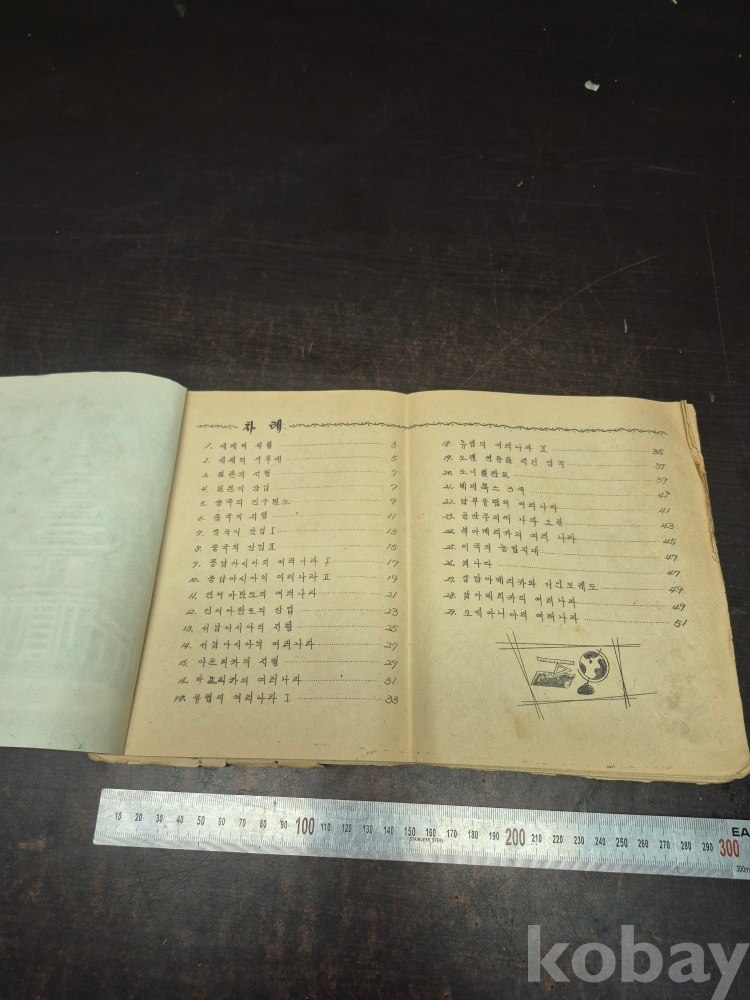 차 례
1. 세계의 지형 3
2. 세계의 기후대 5
3. 일본의 지형 7
4. 일본의 산업 7
5. 중국의 인구 9
6. 중국의 지형 11
7. 중국의 산업 I 13
8. 중국의 산업 II 15
9. 동남아시아의 여러나라 I 17
10. 동남아시아의 여러나라 II 19
11. 인도반도의 여러나라 21
12. 인도반도의 산업 23
13. 서남아시아의 지형 25
14. 서남아시아의 여러나라 27
15. 아프리카의 지형 29
16. 아프리카의 여러나라 31
17. 유럽의 여러나라 I 33
18. 유럽의 여러나라 II 35
19. 영국 37
20. 39
21. 베네룩스 3국
22. 남부유럽의 여러나라 41
23. 공산주의 나라 소련 43
24. 북아메리카의 여러 나라 45
25. 미국의 농업지대 47
26. 캐나다 47
27. 중앙아메리카와 서인도제도 49
28. 남아메리카의 여러나라 49
29. 오세아니아의 여러나라 51
10 20 30 40 50 60 70 80 90 100 110 120 130 140 150 160 170 180 190 200 210 220 230 240 250 260 270 280 290 300
STAINLESS STEEL
EA
300mm
kobay